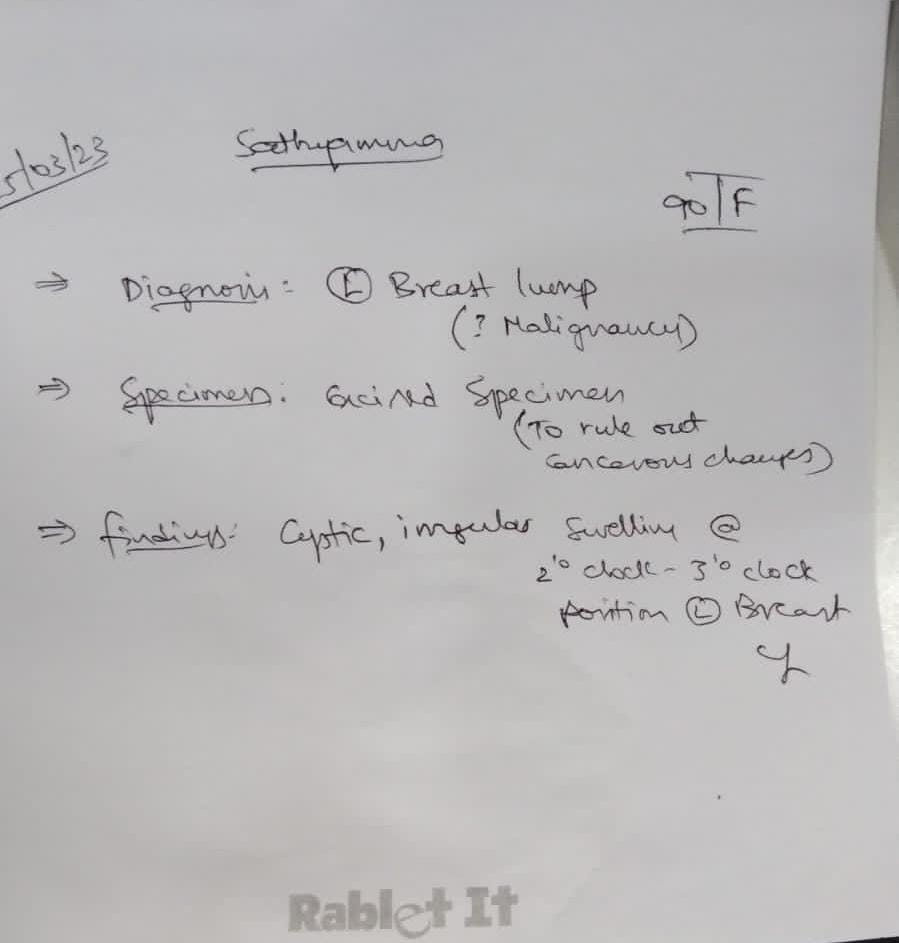 5/03/23
Sathyamma
90/F
⇒ Diagnosis: Ⓛ Breast lump
(? Malignancy)
⇒ Specimen: Excised Specimen
(To rule out
cancerous changes)
⇒ findings: Cystic, irregular Swelling @
2'o clock - 3'o clock
position Ⓛ Breast
Rablet It